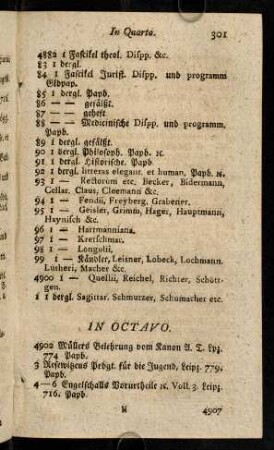 In Quarto. 301
4882 1 Fascikel theol. Dispp. &c.
83 1 dergl.
84 1 Fascikel Jurist. Dispp. und programm
Eldpap.
85 1 dergl. Papb.
86 — — gefälßt.
87 — — geheft
88 — — Medicinische Dispp. und programm.
Papb.
89 1 dergl. gefälßt.
90 1 dergl. Philosoph. Papb. ꝛc.
91 1 dergl. Historische. Papb.
92 1 dergl. litteras elegant. et human. Papb. ꝛc.
93 1 — Rectorum etc. Becker, Bidermann,
Cellar. Claus, Cleemann &c.
94 1 — Fendii, Freyberg, Grabener.
95 1 — Geisler, Grimm, Hager, Hauptmann,
Haynisch &c.
96 1 — Hartmanniana.
97 1 — Kretschmar.
98 1 — Longolii.
99 1 — Kändler, Leisner, Lobeck, Lochmann.
Lutheri, Macher &c.
4900 1 — Quellii, Reichel, Richter, Schött-
gen.
1 1 dergl. Sagittar. Schmurzer, Schumacher etc.
IN OCTAVO.
4902 Müllers Belehrung vom Kanon A. T. Lpz.
774 Papb.
3 Resewitzens Predgt. für die Jugend, Leipz. 779.
Papb.
4—6 Engelschalls Vorurtheile ꝛc. Voll. 3. Leipz.
716. Papb.
4907